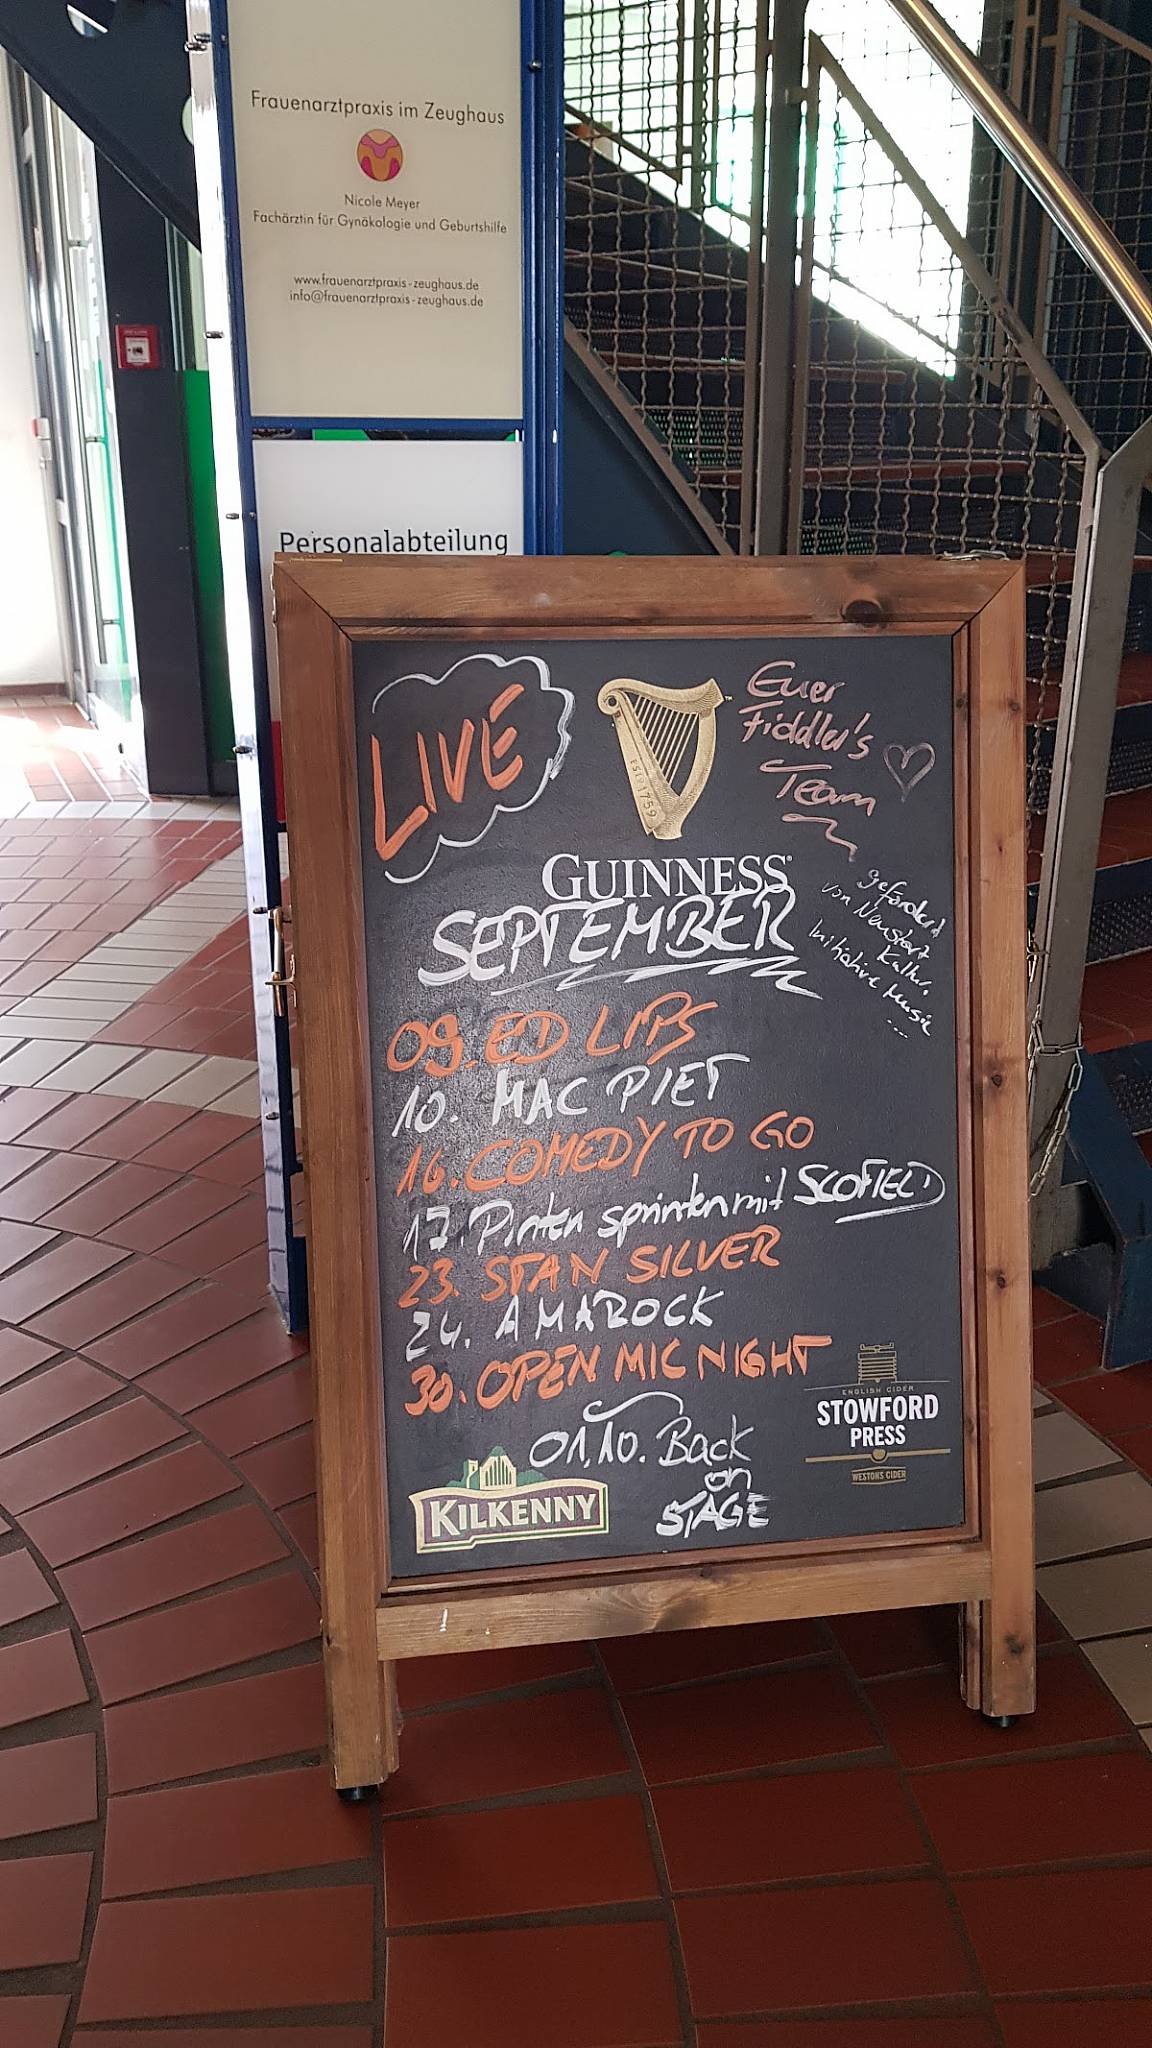 Frauenarztpraxis im Zeughaus
Nicole Meyer
Fachärztin für Gynäkologie und Geburtshilfe
www.frauenarztpraxis-zeughaus.de
info@frauenarztpraxis-zeughaus.de
Personalabteilung
LIVE
ESTD 1759
Euer
Fiddler's
Team
GUINNESS
gefördert
von Neustart
Kultur.
Initiative Musik
....
SEPTEMBER
09. ED LIPS
10. MAC PIET
16. COMEDY TO GO
17. Pinten sprinten mit SCOFIELD
23. STAN SILVER
24. AMAROCK
30. OPEN MIC NIGHT
01.10. Back
on
STAGE
KILKENNY
ENGLISH CIDER
STOWFORD
PRESS
WESTONS CIDER